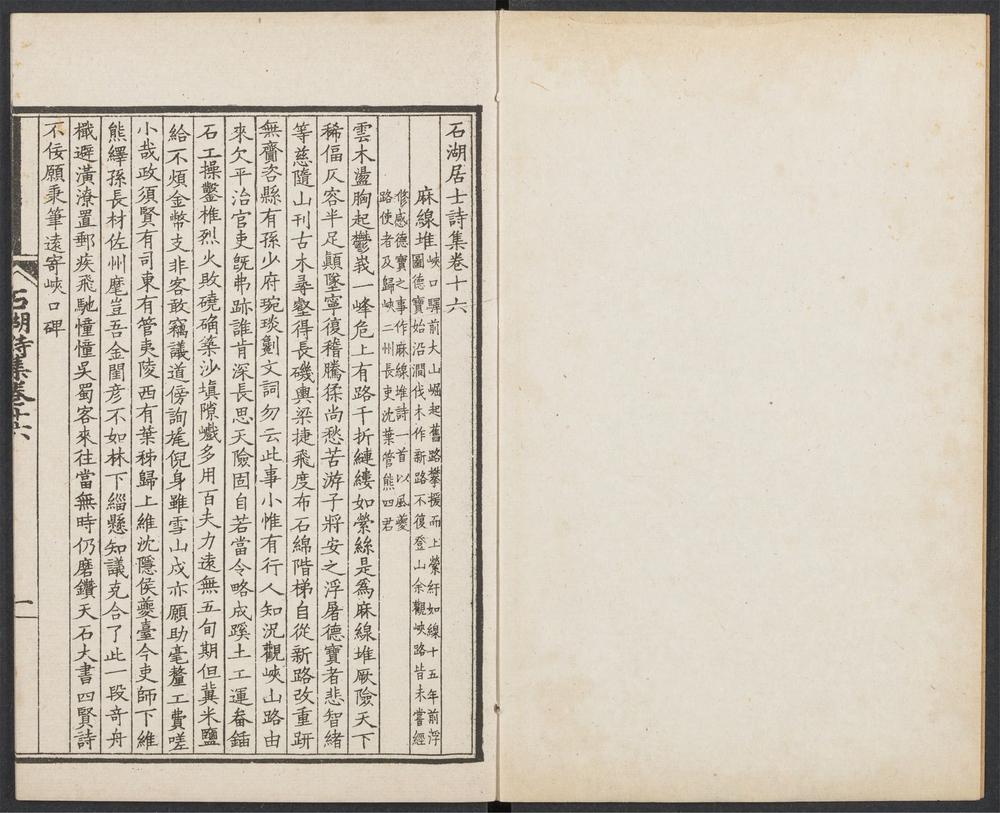 石湖居士詩集卷十六
麻線堆峽口驛前大山崛起舊路攀援而上縈紆如線十五年前浮
圖德寶始沿澗伐木作新路不復登山余觀峽路皆未嘗經
修感德寶之事作麻線堆詩一首以風夔
路使者及歸峽二州長吏沈葉管熊四君
雲木盪胸起鬱峩一峰危上有路千折縺縷如縈絲是爲麻線堆厥險天下
稀偪仄容半足顛墜寧復稽騰猱尚愁苦游子將安之浮屠德寶者悲智緒
等慈隨山刊古木尋壑得長磯輿梁捷飛度布石綿階梯自從新路改重趼
無齎咨縣有孫少府琬琰劖文詞勿云此事小惟有行人知況觀峽山路由
來欠平治官吏旣弗跡誰肯深長思天險固自若當令略成蹊土工運畚鍤
石工操鑿椎烈火敗磽确築沙塡隙巇多用百夫力遠無五旬期但冀米鹽
給不煩金幣支非客敢竊議道傍詢旄倪身雖雪山戍亦願助毫釐工費嗟
小哉政須賢有司東有管夷陵西有葉秭歸上維沈隱侯夔臺今吏師下維
熊繹孫長材佐州麾豈吾金閨彥不如林下緇懸知議克合了此一段奇舟
檥避潢潦置郵疾飛馳憧憧吳蜀客來往當無時仍磨鑽天石大書四賢詩
不佞願秉筆遠寄峽口碑
石湖詩集卷十六
一